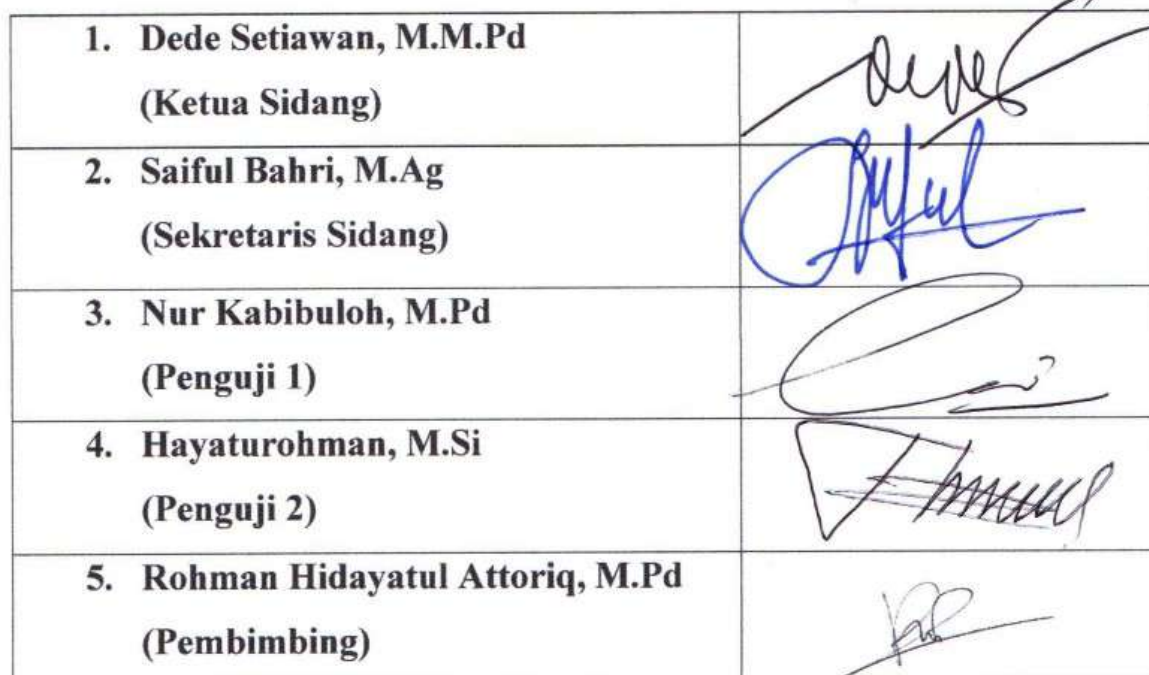 1. Dede Setiawan, M.M.Pd
(Ketua Sidang)
2. Saiful Bahri, M.Ag
(Sekretaris Sidang)
3. Nur Kabibuloh, M.Pd
(Penguji 1)
4. Hayaturohman, M.Si
(Penguji 2)
5. Rohman Hidayatul Attoriq, M.Pd
(Pembimbing)